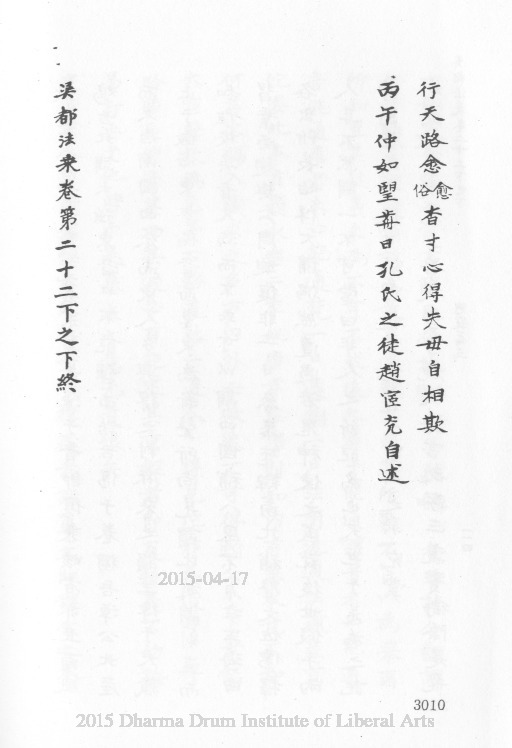 行天路愈愈俗杳寸心得失毋自相欺
丙午仲如望莽日孔氏之徒趙宧充自述
渠都法乘卷第二十二下之下終
2015-04-17
3010
2015 Dharma Drum Institute of Liberal Arts